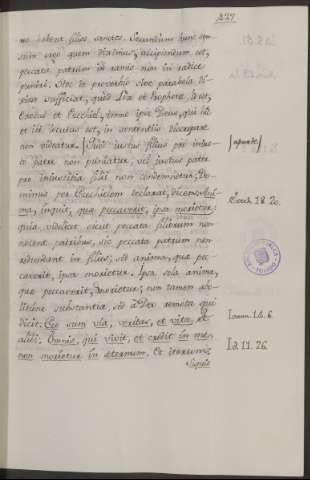 227
sum ergo quem diximus, accipiendum est,
peccata patrum in ramis non in radice
puniri. Hoc de proverbio sive parabola di-
xisse sufficiat, quod Lex et Propheta, id est,
Exodus et Ezechiel, immo ipse Deus, qui hic
et ibi locutus est, in sententiis discrepare
non videatur. / Quod iustus filius pro inius-
to patre non puniatur, vel iustus pater
pro iniustitia filii non condemnetur, Do-
minus per Ezechielem declarat, dicens: Ani-
ma, inquit, quae peccaverit, ipsa morietur:
quia videlicet sicut peccata filiorum non
nocent patribus, sic peccata patrum non
redundant in filios, sed anima, quae pec-
caverit, ipsa morietur. Ipsa sola anima,
quae peccaverit, morietur; non tamen abo-
litione substantiae, sed a Deo remota qui
dicit: Ego sum via, veritas, et vita; et
alibi: Omnis, qui vivit, et credit in me,
non morietur in aeternum. Et iterum:
/aparte/
Ezech. 18. 20.
Ioann. 14. 6.
Id. 11. 26.